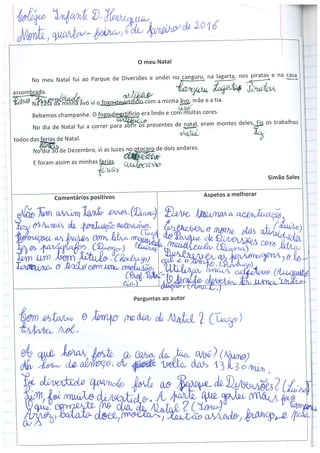 Colégio Infante D. Henrique
Monte, quarta-feira, 6 de Janeiro de 2016
O meu Natal
No meu Natal fui ao Parque de Diversões e andei no canguru, na lagarta, nos piratas e na casa
assombrada.
Canguru Lagarta Piratas
Casa Assombrada
Na casa da minha avó vi o fogo-de-artifício com a minha avó, mãe e a tia.
Bebemos champanhe. O fogo-de-artifício era lindo e com muitas cores.
No dia de Natal fui a correr para abrir os presentes de natal, eram montes deles. Fis os trabalhos
todos das ferias de Natal.
Natal
Fiz
No dia 30 de Dezembro, vi as luzes no otocaro de dois andares.
E foram assim as minhas ferias.
férias
autocarro
Simão Sales
Comentários positivos
Aspetos a melhorar
Não tem assim tanto erros. (Diana)
Fez os sinais de pontuação necessários.
Começou as frases com letra maiúscula
Fez os parágrafos. (Diogo)
Tem um bom título. (Rodrigo)
Termina o texto com uma conclusão.
Deve treinar a acentuação.
(Luísa)
Escrever o nome das atrações
do Parque de Diversões com letra
maiúscula. (Diana)
Descrever as personagens, o lo-
cal e o tempo. (Rodrigo)
Utilizar mais adjetivos (Augusto)
O texto deveria ter uma intro-
dução.
Perguntas ao autor
Como estava o tempo no dia de Natal? (Tiago)
Estava sol.
A que horas foste a casa da tua avó? (Nuno)
Na hora do almoço. À volta das 13h30min.
Foi divertido quando foste ao Parque de Diversões? (Luísa)
Sim, foi muito divertido. A parte que gostei mais foi
O que comeste no dia de Natal? (Lara)
Arroz, batata doce, leitão assado, frango, e